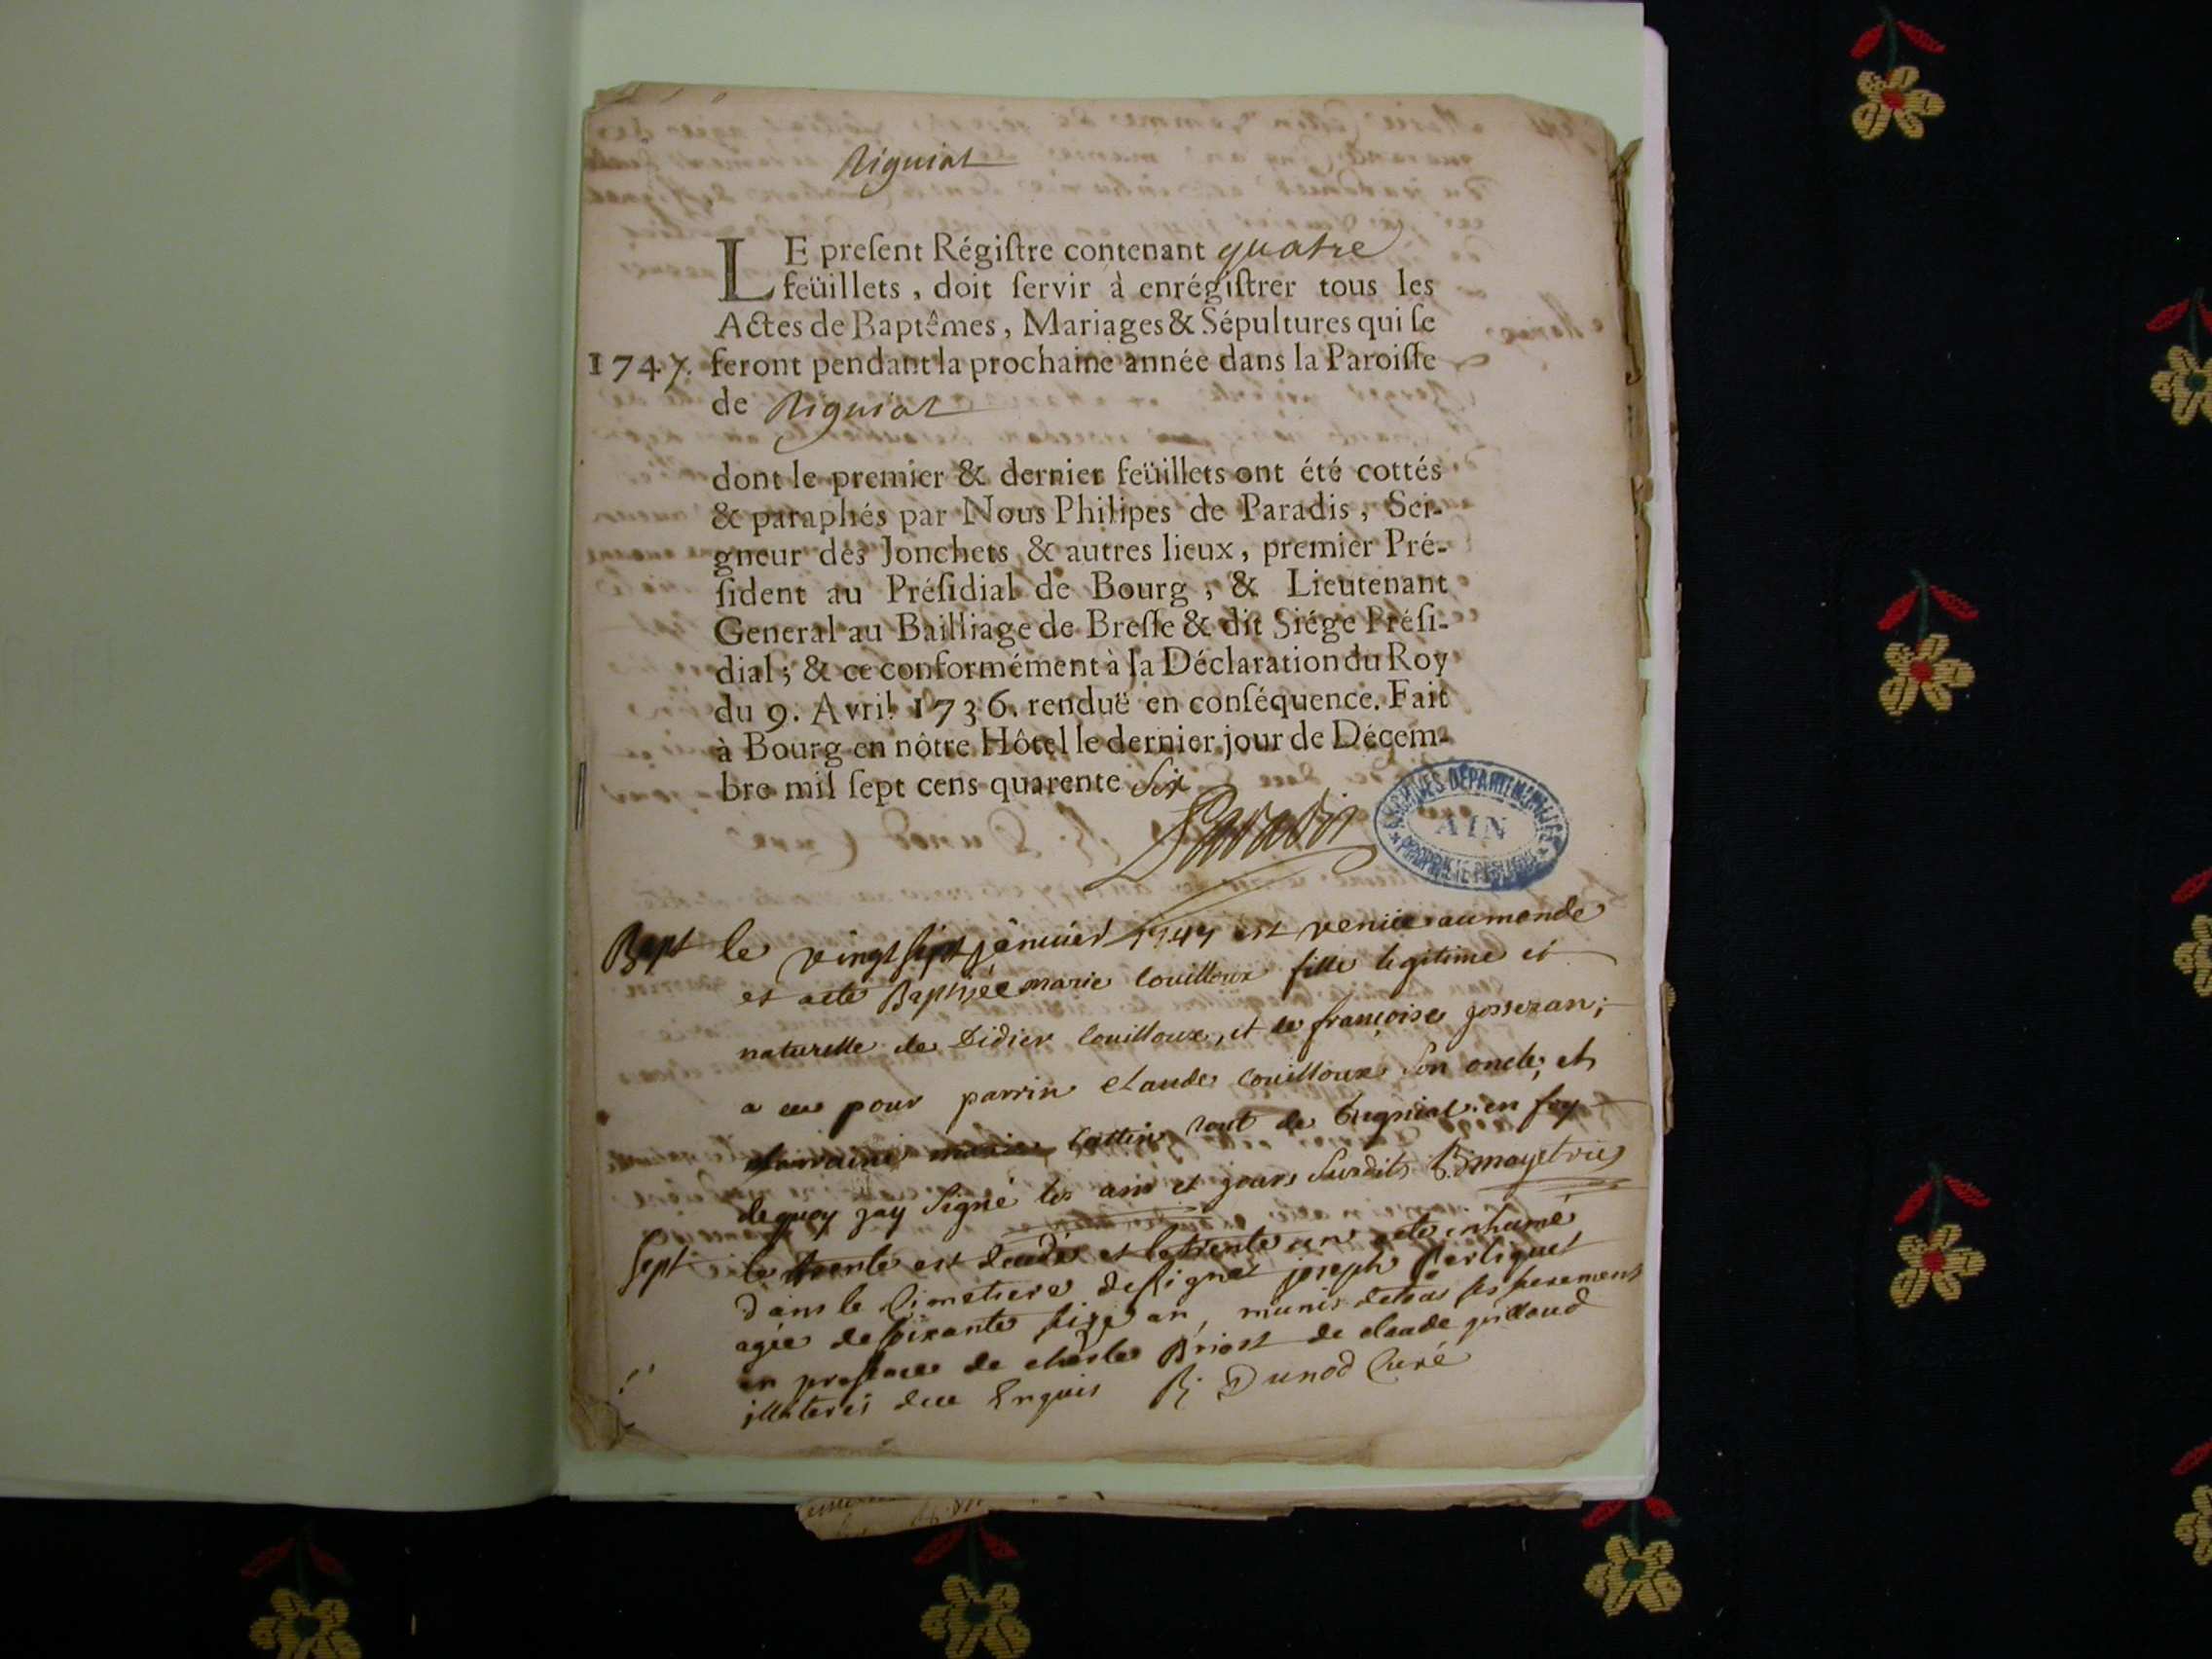 Riguiat
LE preſent Régiſtre contenant quatre
feüillets, doit ſervir à enrégiſtrer tous les
Actes de Baptêmes, Mariages & Sépultures qui ſe
1747. feront pendant la prochaine année dans la Paroiſſe
de Riguiat
dont le premier & dernier feüillets ont été cottés
& paraphés par Nous Philipes de Paradis, Sei-
gneur des Jonchets & autres lieux, premier Pré-
ſident au Préſidial de Bourg, & Lieutenant
General au Bailliage de Breſſe & dit Siége Préſi-
dial; & ce conformément à la Déclaration du Roy
du 9. Avril 1736. renduë en conſéquence. Fait
à Bourg en nôtre Hôtel le dernier jour de Décem-
bre mil ſept cens quarente six
Paradis
ARCHIVES DÉPARTEMENTALES
AIN
Bapt le vingt sept janvier 1747 est venue au monde
et a ete Baptisée marie Couilloux fille legitime et
naturelle de Didier Couilloux, et de françoise josseran;
a eu pour parrin Claude Couilloux son oncle, et
marraine Cattin tout de en foy
de quoy jay signé les an et jours susdits
Sept le trente est decedé et le trente un a ete inhumé
dans le Cimetiere de Rignat joseph Perliquet
agée de soixante seize an, munis de tous ses
en presance de charle Briost de claude guillaud
illiteres deu Enquis Dunod Curé